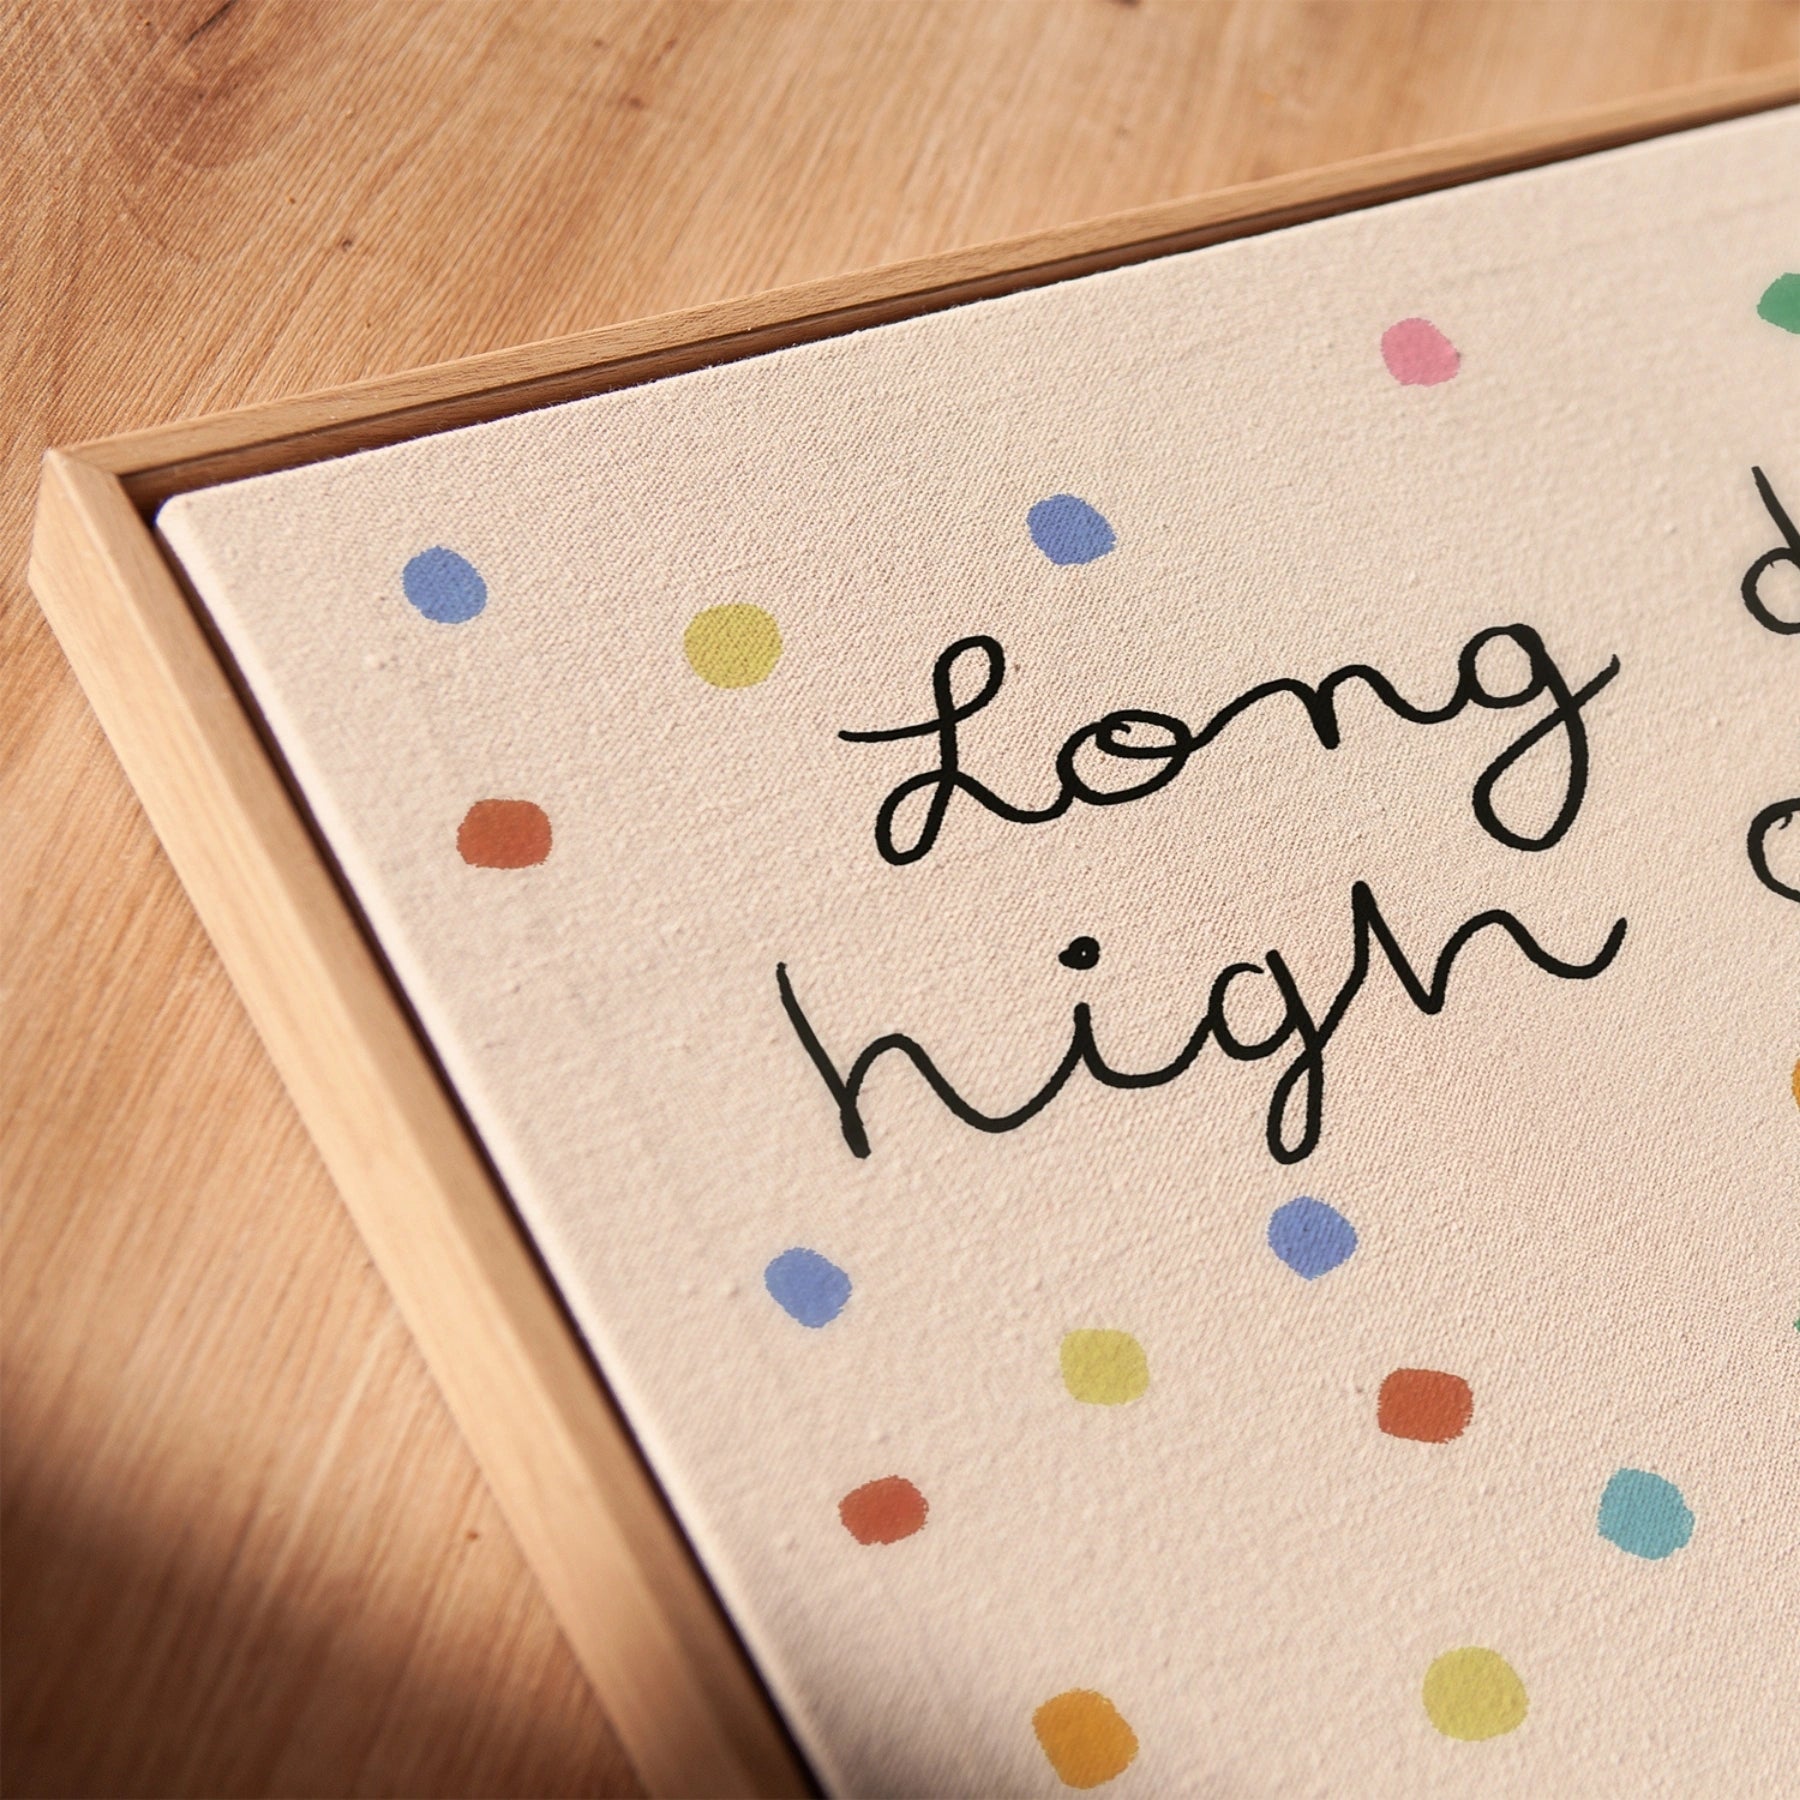 Long d
high